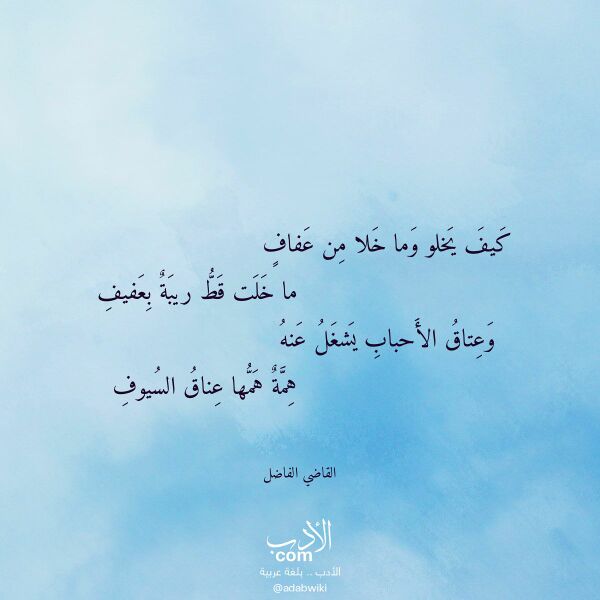 كَيفَ يَخلو وَما خَلا مِن عَفافٍ
ما خَلَت قَطُّ ريبَةٌ بِعَفيفِ
وَعِتاقُ الأَحبابِ يَشغَلُ عَنهُ
هِمَّةٌ هَمُّها عِناقُ السُيوفِ
القاضي الفاضل
الأدب
com
الأدب .. بلغة عربية
@adabwiki